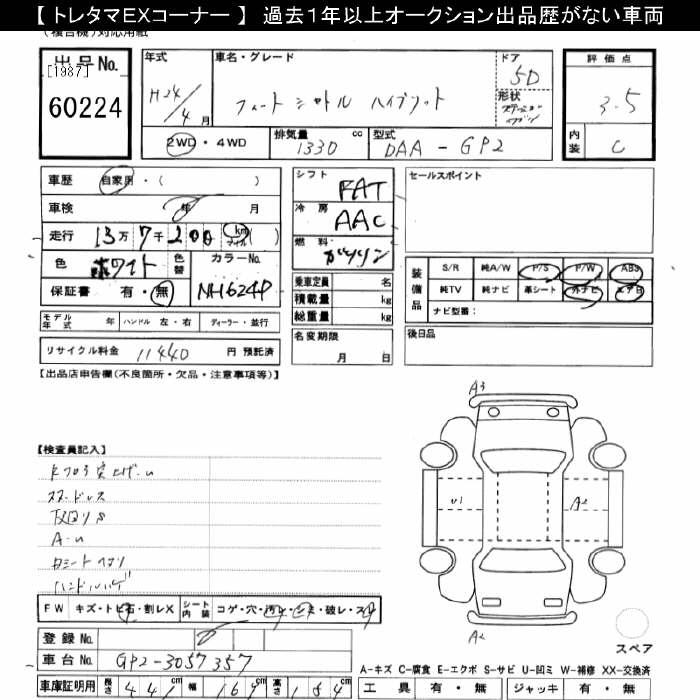 【 トレタマEXコーナー 】 過去１年以上オークション出品歴がない車両
出品No.
[1987]
60224
年式
H24/4月
車名・グレード
フィットシャトル ハイブリット
ドア
5D
形状
評価点
3.5
内装
C
2WD・4WD
排気量
1330 cc
型式
DAA-GP2
車歴 自家用・( )
車検 年 月
走行 13万7千200 km マイル ( )
色 ホワイト 色替
カラーNo. NH624P
保証書 有・無
モデル年式 年 ハンドル 左・右 ディーラー・並行
リサイクル料金 11440 円 預託済
シフト FAT
冷房 AAC
燃料 ガソリン
乗車定員 名
積載量 kg
総重量 kg
名変期限
月 日
セールスポイント
装備品
S/R 純A/W P/S P/W ABS
純TV 純ナビ 革シート 外ナビ エアB
ナビ型番:
後日品
【出品店申告欄(不良箇所・欠品・注意事項等)】
【検査員記入】
スマートレス
A-U
ハンドルハゲ
A3
U1
A2
A2
スペア
FW キズ・トビ石・割レX シート内装 コゲ・穴・汚レ・シミ・破レ・スレ
登録No.
車台No. GP2-3057357
車庫証明用 長さ 441 cm 幅 169 cm 高さ 154 cm
A-キズ C-腐食 E-エクボ S-サビ U-凹ミ W-補修 XX-交換済
工具 有・無 ジャッキ 有・無